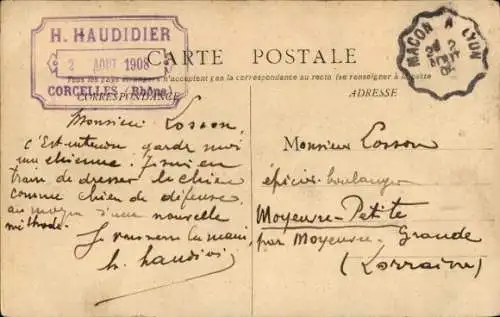 H. HAUDIDIER
2 AOUT 1908
CORCELLES (Rhône)
CARTE POSTALE
Tous les pays étrangers n'acceptent pas la correspondance au recto (se renseigner à la poste)
CORRESPONDANCE
ADRESSE
MACON A LYON
2 AOUT 08
Monsieur Losson,
c'est entendu garde moi
une chienne. Je suis en
train de dresser le chien
comme chien de défense,
au moyen d'une nouvelle
méthode.
Je vous serre la main,
h. haudidi
Monsieur Losson
épicier boulanger
Moyeuvre-Petite
par Moyeuvre-Grande
(Lorraine)